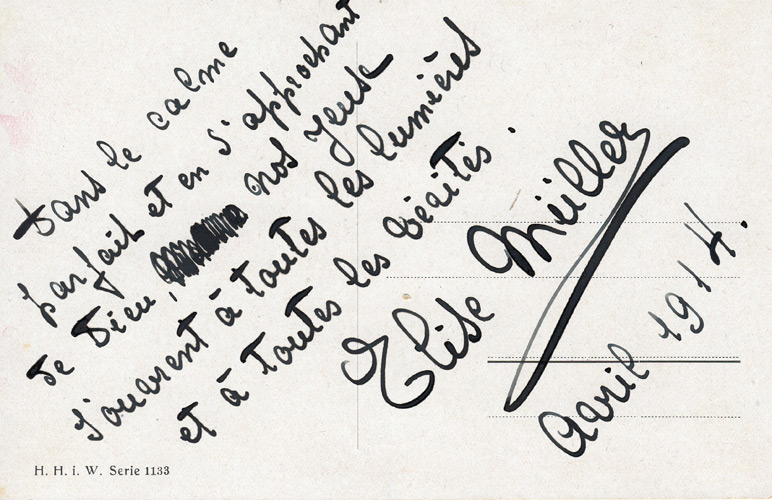 Dans le calme
parfait et en s'approchant
de Dieu, nos yeux
s'ouvrent à toutes les lumières
et à toutes les vérités.
Elise Müller
Avril 1914.
H. H. i. W. Serie 1133